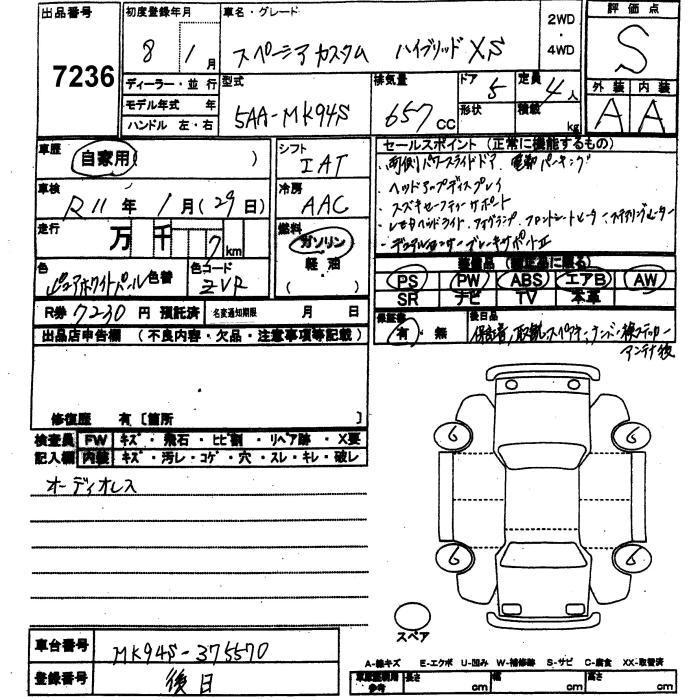 出品番号
7236
初度登録年月
8年1月
車名・グレード
スペーシアカスタム ハイブリッド XS
2WD
・
4WD
評価点
S
外装 内装
A A
ディーラー・並行
モデル年式 年
ハンドル 左・右
型式
5AA-MK94S
排気量
657cc
ドア 5
形状
定員 4人
積載 kg
車歴
自家用( )
車検
R11年1月(29日)
走行
万 千 7 km
色
ピュアホワイトパール
色替
色コード
ZVR
シフト
IAT
冷房
AAC
燃料
ガソリン
軽油
( )
セールスポイント(正常に機能するもの)
・両側パワースライドドア 電動パーキング
・ヘッドアップディスプレイ
・スズキセーフティーサポート
・LEDヘッドライト・フォグランプ フロントシートヒーター・ステアリングヒーター
・デュアルセンサーブレーキサポートII
装備品(純正品に限る)
PS PW ABS エアB AW
SR ナビ TV 本革
R券 7230円 預託済
名変通知期限 月 日
保証書
有・無
後日品
保証書、取説、スペアキー、ナンバー
アンテナ後
出品店申告欄(不良内容・欠品・注意事項等記載)
修復歴 有〔箇所 〕
検査員
記入欄
FW キズ・飛石・ヒビ割・リペア跡・X要
内装 キズ・汚レ・コゲ・穴・スレ・キレ・破レ
オーディオレス
6 6
6 6
スペア
車台番号
MK94S-375570
登録番号
後日
A-線キズ E-エクボ U-凹み W-補修跡 S-サビ C-腐食 XX-取替済
参考
長さ cm 幅 cm 高さ cm